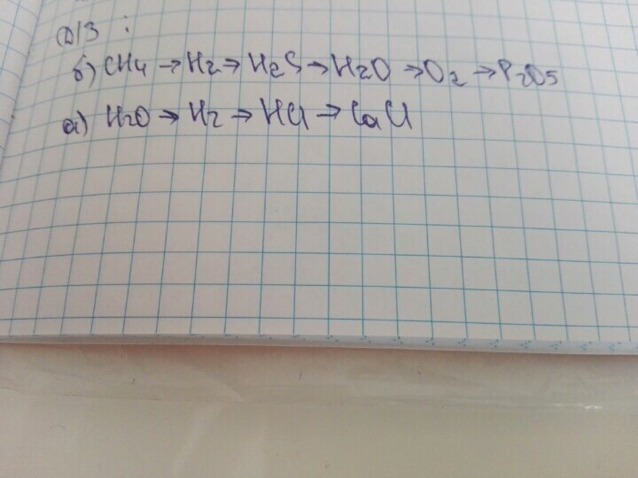 Д/З :
б) CH4 → H2 → H2S → H2O → O2 → P2O5
а) H2O → H2 → HCl → CaCl